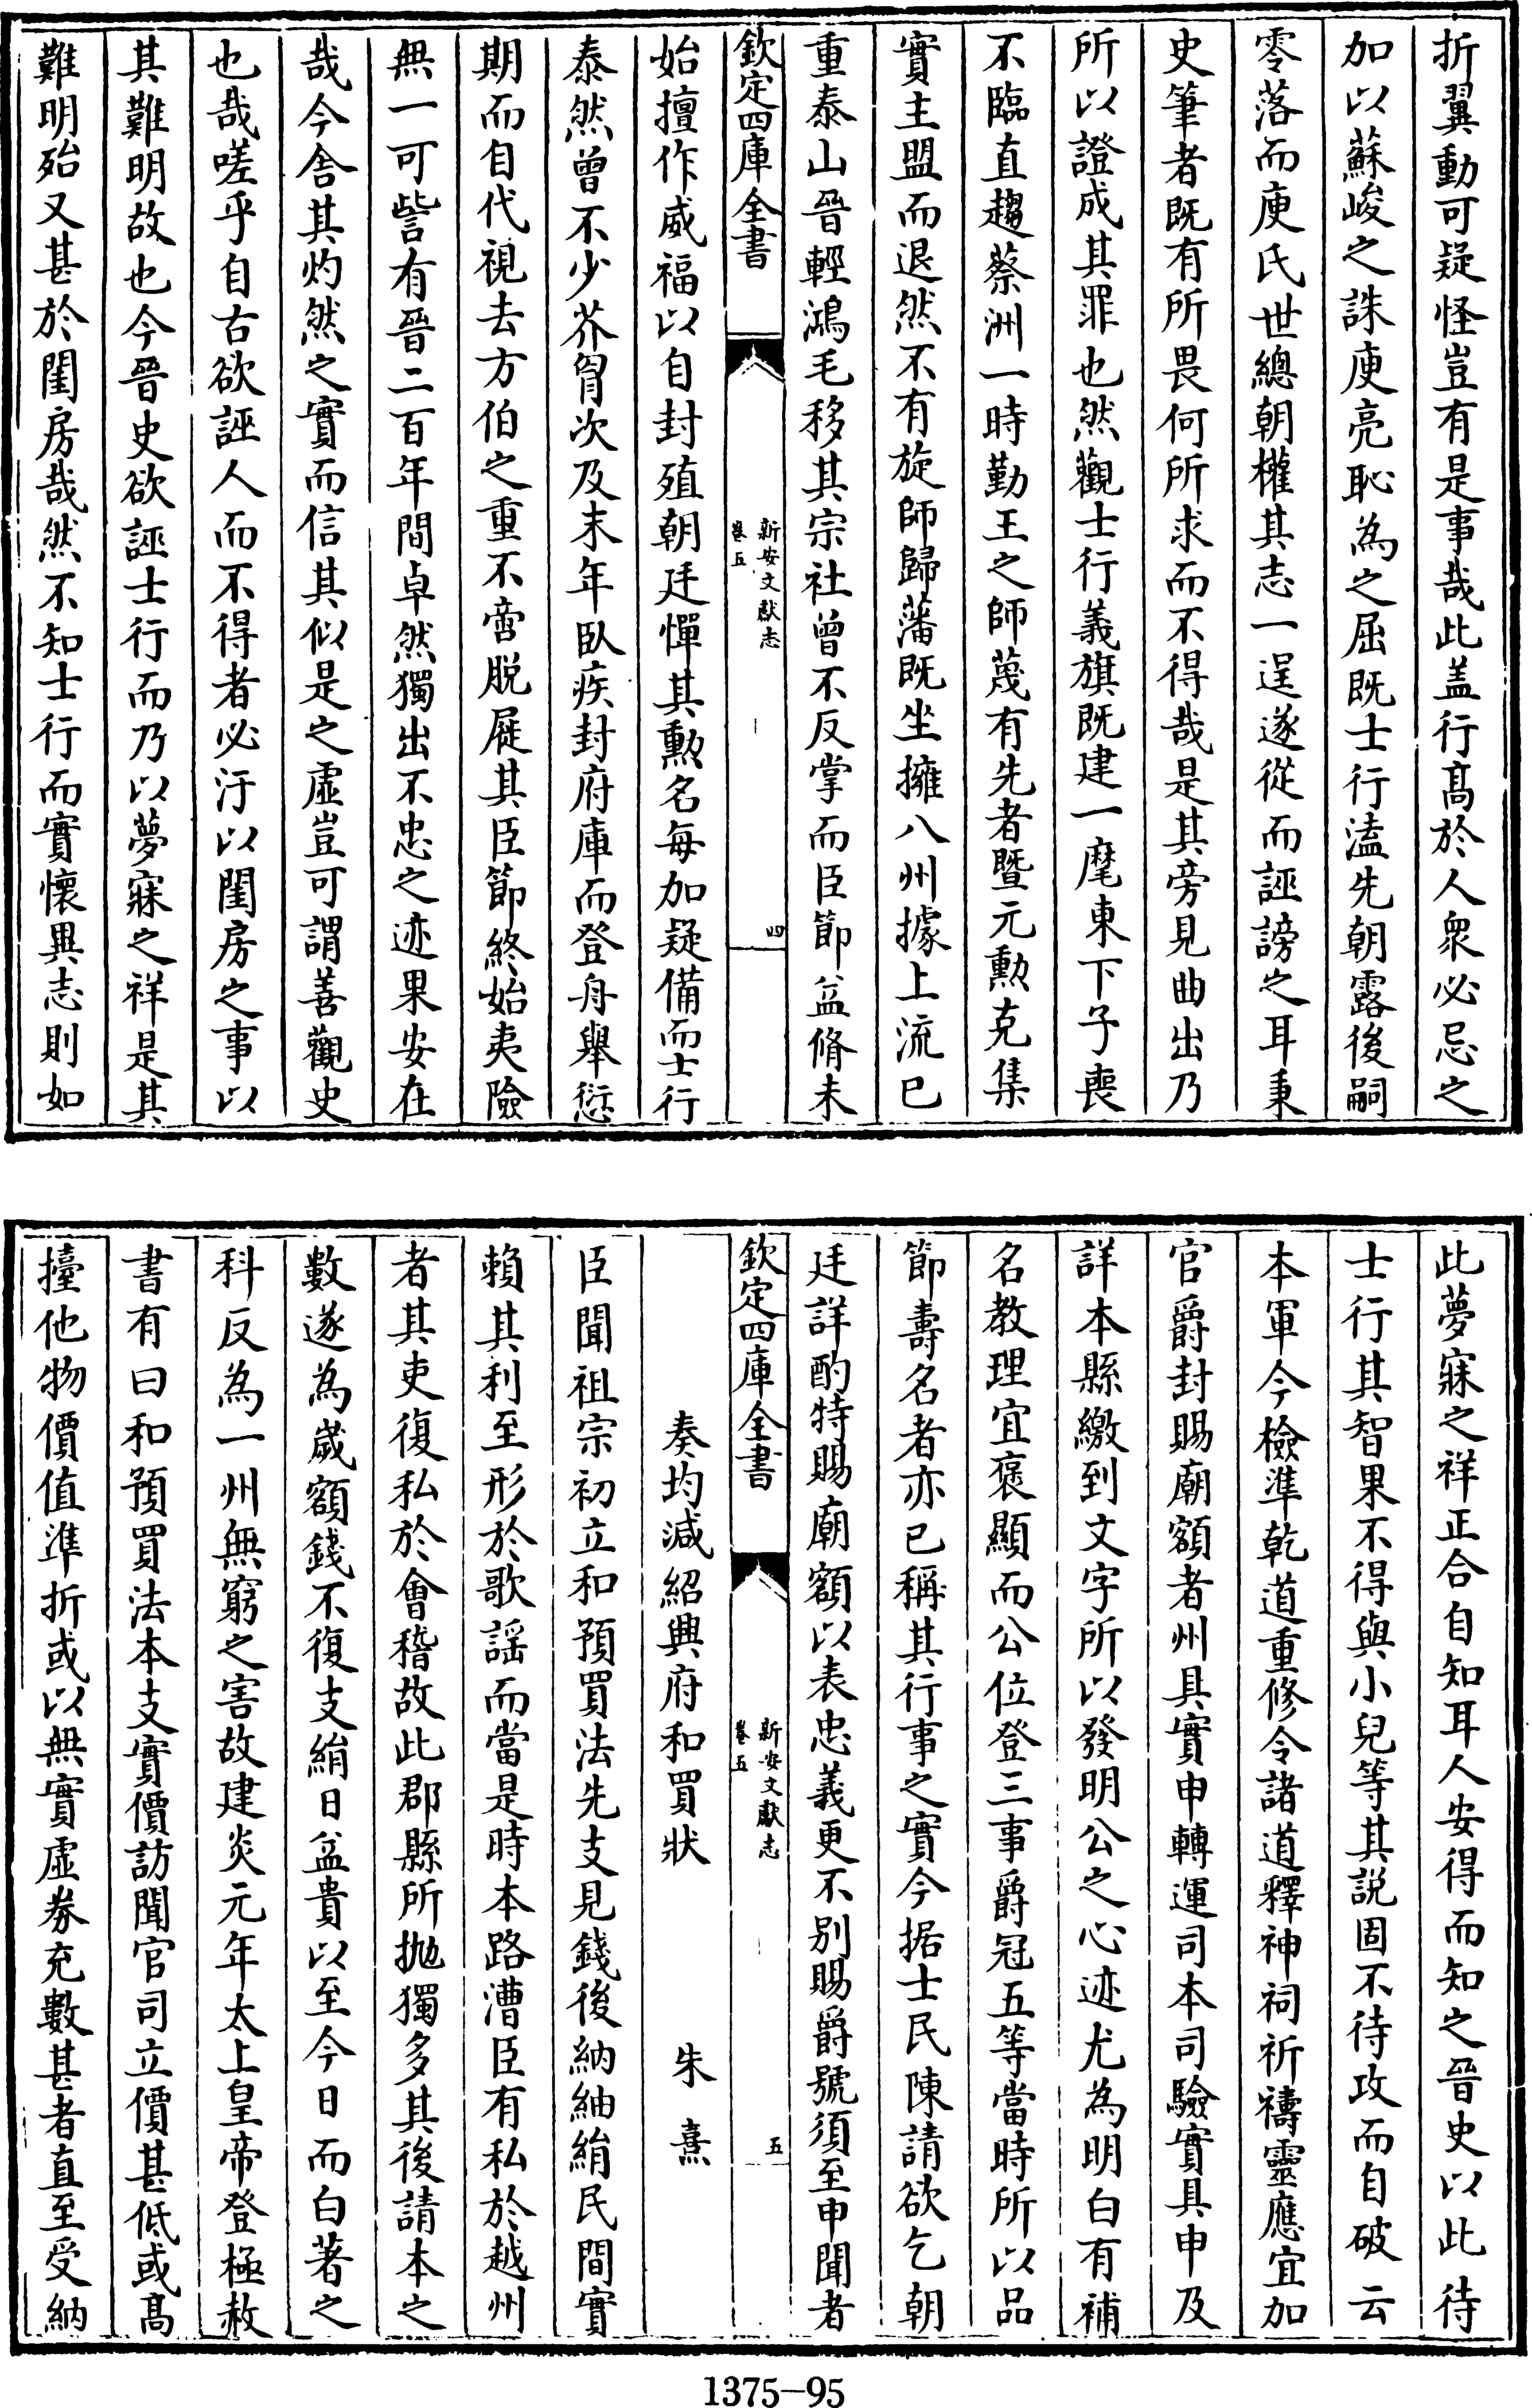 折翼動可疑怪豈有是事哉此盖行髙於人衆必忌之
加以蘇峻之誅庾亮恥為之屈既士行溘先朝露後嗣
零落而庾氏世總朝權其志一逞遂從而誣謗之耳秉
史筆者既有所畏何所求而不得哉是其旁見曲出乃
所以證成其罪也然觀士行義旗既建一麾東下子喪
不臨直趨蔡洲一時勤王之師蔑有先者暨元勲克集
實主盟而退然不有旋師歸藩既坐擁八州據上流已
重泰山晉輕鴻毛移其宗社曾不反掌而臣節益脩未
欽定四庫全書
新安文獻志
卷五
四
始擅作威福以自封殖朝廷憚其勲名每加疑備而士行
泰然曾不少芥胷次及末年臥疾封府庫而登舟舉愆
期而自代視去方伯之重不啻脱屣其臣節終始夷險
無一可訾有晉二百年間卓然獨出不忠之迹果安在
哉今舎其灼然之實而信其似是之虛豈可謂善觀史
也哉嗟乎自古欲誣人而不得者必汙以閨房之事以
其難明故也今晉史欲誣士行而乃以夢寐之祥是其
難明殆又甚於閨房哉然不知士行而實懷異志則如
此夢寐之祥正合自知耳人安得而知之晉史以此待
士行其智果不得與小兒等其説固不待攻而自破云
本軍今檢準乾道重修令諸道釋神祠祈禱靈應宜加
官爵封賜廟額者州具實申轉運司本司驗實具申及
詳本縣繳到文字所以發明公之心迹尤為明白有補
名教理宜褒顯而公位登三事爵冠五等當時所以品
節壽名者亦已稱其行事之實今据士民陳請欲乞朝
廷詳酌特賜廟額以表忠義更不别賜爵號須至申聞者
欽定四庫全書
新安文獻志
卷五
五
奏均減紹興府和買狀　朱熹
臣聞祖宗初立和預買法先支見錢後納紬絹民間實
賴其利至形於歌謡而當是時本路漕臣有私於越州
者其吏復私於會稽故此郡縣所抛獨多其後請本之
數遂為嵗額錢不復支絹日益貴以至今日而白著之
科反為一州無窮之害故建炎元年太上皇帝登極赦
書有曰和預買法本支實價訪聞官司立價甚低或髙
擡他物價值準折或以無實虛劵充數甚者直至受納
1375-95